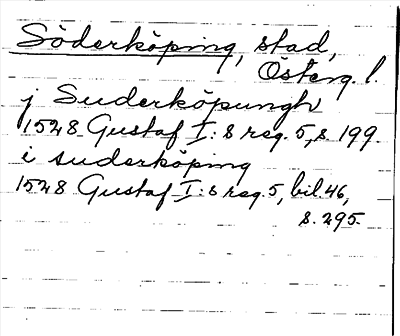 Söderköping, stad,
Österg. l.
j Suderköpungh
1528 Gustaf I:s reg. 5, s. 199.
i suderköping
1528 Gustaf I:s reg. 5, bil. 46,
s. 295.